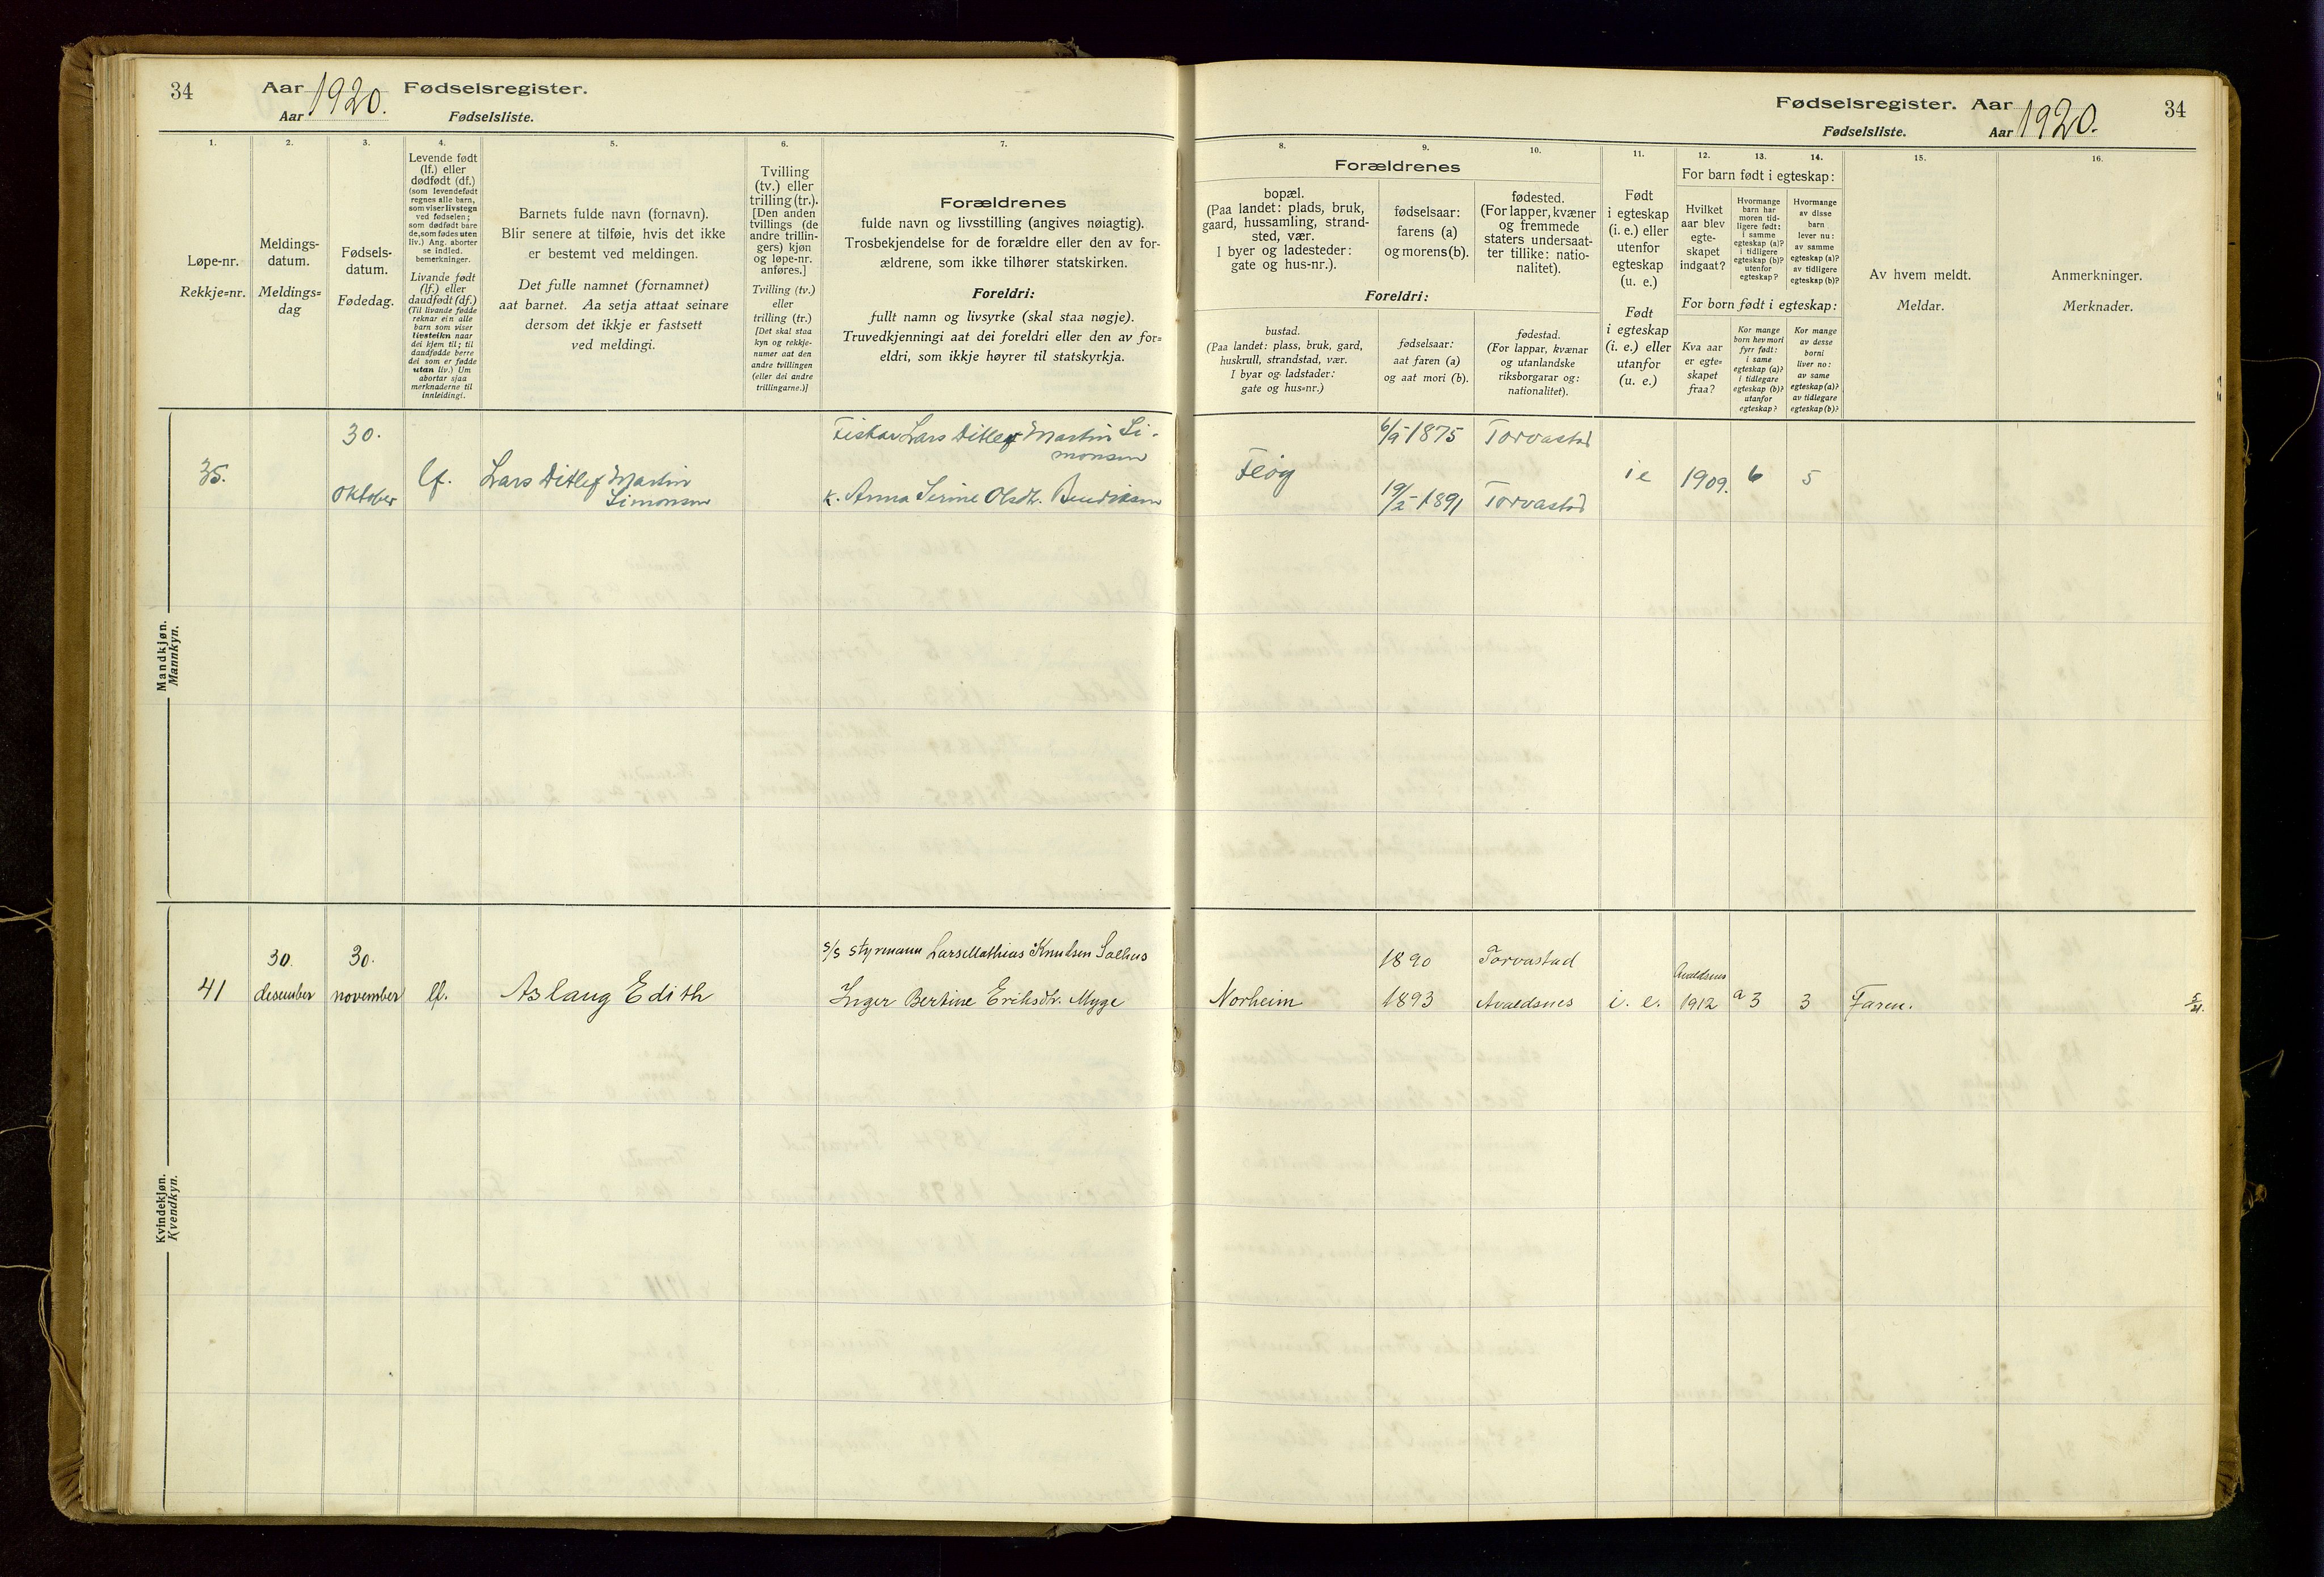 34
Aar 1920. Fødselsregister.
Aar
Fødselsliste.
1.
2.
3.
4.
5.
6.
7.
Løpe-nr.
Rekkje=nr.
Meldings-
datum.
Meldings=
dag
Fødsels-
datum.
Fødedag.
Levende født
(lf.) eller
dødfødt (df.)
(som levendefødt
regnes alle barn,
som viser livstegn
ved fødselen;
som dødfødt bare
de, som fødes uten
liv.) Ang. aborter
se indled.
bemerkninger.
Livande født
(lf.) eller
daudfødt (df.)
(Til livande fødde
reknar ein alle
barn som viser
livsteikn naar
dei kjem til; til
daudfødde berre
dei som er fødde
utan liv.) Um
abortar sjaa
merknaderne til
innleidingi.
Barnets fulde navn (fornavn).
Blir senere at tilføie, hvis det ikke
er bestemt ved meldingen.
Det fulle namnet (fornamnet)
aat barnet. Aa setja attaat seinare
dersom det ikkje er fastsett
ved meldingi.
Tvilling
(tv.) eller
trilling (tr.).
[Den anden
tvillings (de
andre trillin-
gers) kjøn
og løpe-nr.
anføres.]
Tvilling (tv.)
eller
trilling (tr.)
[Det skal staa
kyn og rekkje-
numer aat den
andre tvillingen
(eller dei andre
trillingarne.)]
Forældrenes
fulde navn og livsstilling (angives nøiagtig).
Trosbekjendelse for de forældre eller den av for-
ældrene, som ikke tilhører statskirken.
Foreldri:
fullt namn og livsyrke (skal staa nøgje).
Truvedkjenningi aat dei foreldri eller den av for=
eldri, som ikkje høyrer til statskyrkja.
Mandkjøn.
Mannkyn.
30.
Fiskar Lars Ditlef Martin Si-
monsen
35.
oktober
lf.
Lars Ditlef Martin
Simonsen
k. Anna Serine Olsdtr. Bendiksen
Kvindekjøn.
Kvendkyn.
30.
30.
s/s styrmann Lars Mathias Knudsen Salhus
41
desember
november
lf.
Aslaug Edith
Inger Bertine Eriksdtr. Myge
Fødselsregister. Aar 1920.
34
Fødselsliste.
Aar
8.
9.
10.
11.
12.
13.
14.
15.
16.
Forældrenes
bopæl.
(Paa landet: plads, bruk,
gaard, hussamling, strand-
sted, vær.
I byer og ladesteder:
gate og hus-nr.).
fødselsaar:
farens (a)
og morens (b).
fødested.
(For lapper, kvæner
og fremmede
staters undersaat-
ter tillike: natio-
nalitet).
Foreldri:
bustad.
(Paa landet: plass, bruk, gard,
huskrull, strandstad, vær.
I byar og ladstader:
gate og hus=nr.)
fødselsaar:
aat faren (a)
og aat mori (b).
fødestad.
(For lappar, kvænar
og utanlandske
riksborgarar og:
nationalitet).
Født
i egteskap
(i. e.) eller
utenfor
egteskap
(u. e.)
Født
i egteskap
(i. e.) eller
utanfor
(u. e.)
For barn født i egteskap:
Hvilket
aar blev
egte-
skapet
indgaat?
Hvormange
barn har
moren tid-
ligere født:
i samme
egteskap (a)?
i tidligere
egteskap (b)?
utenfor
egteskap?
Hvormange
av disse
barn
lever nu:
av samme
egteskap (a)?
av tidligere
egteskap (b)?
For born født i egteskap:
Kva aar
er egte=
skapet
fraa?
Kor mange
born hev mori
fyrr født:
i same
egteskap (a)?
i tidlegare
egteskap (b)?
utanfor
egteskap?
Kor mange
av desse
borni
liver no:
av same
egteskap (a)?
av tidlegare
egteskap (b)?
Av hvem meldt.
Meldar.
Anmerkninger.
Merknader.
6/9-1875 Torvastad
Feøy
i e
1909.
6
5
19/2-1891 Torvastad
1890 Torvastad
Avaldsnes
Norheim 1893 Avaldsnes i. e. 1912 a 3 3 Faren.